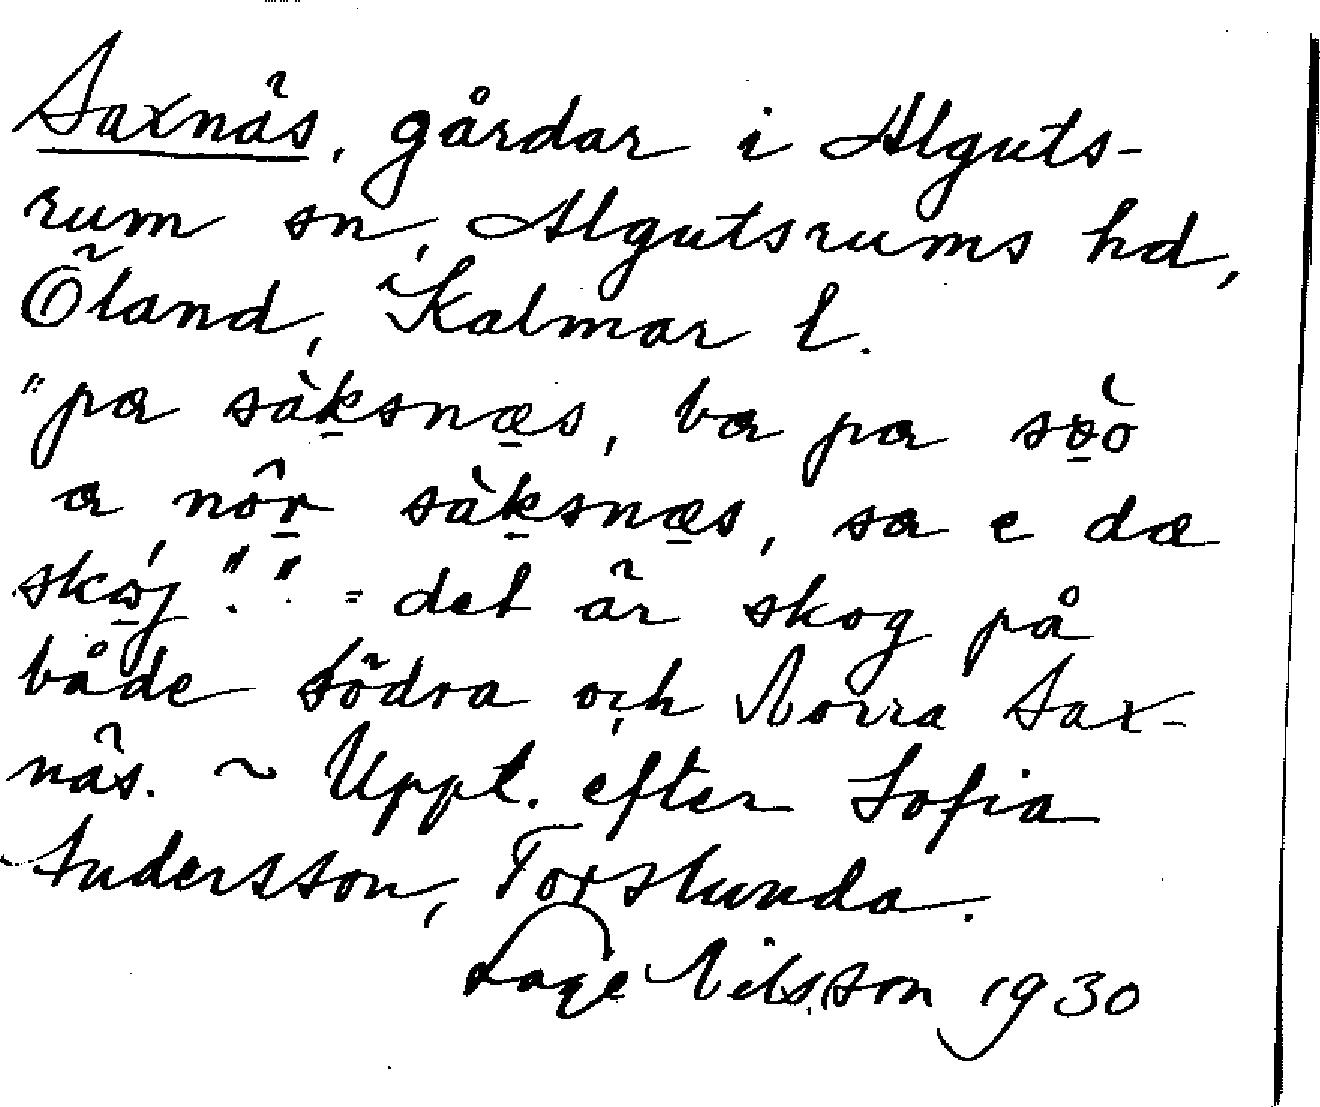 Saxnäs, gårdar i Alguts-
rum sn, Algutsrums hd,
Öland, Kalmar l.
"pa sàksnæs, ba pa søò
a nôr sàksnæs, sa e dæ
skój"." = det är skog på
både södra och Norra Sax-
näs. ~ Uppt. efter Sofia
Andersson, Torslunda.
Lage Nilsson 1930